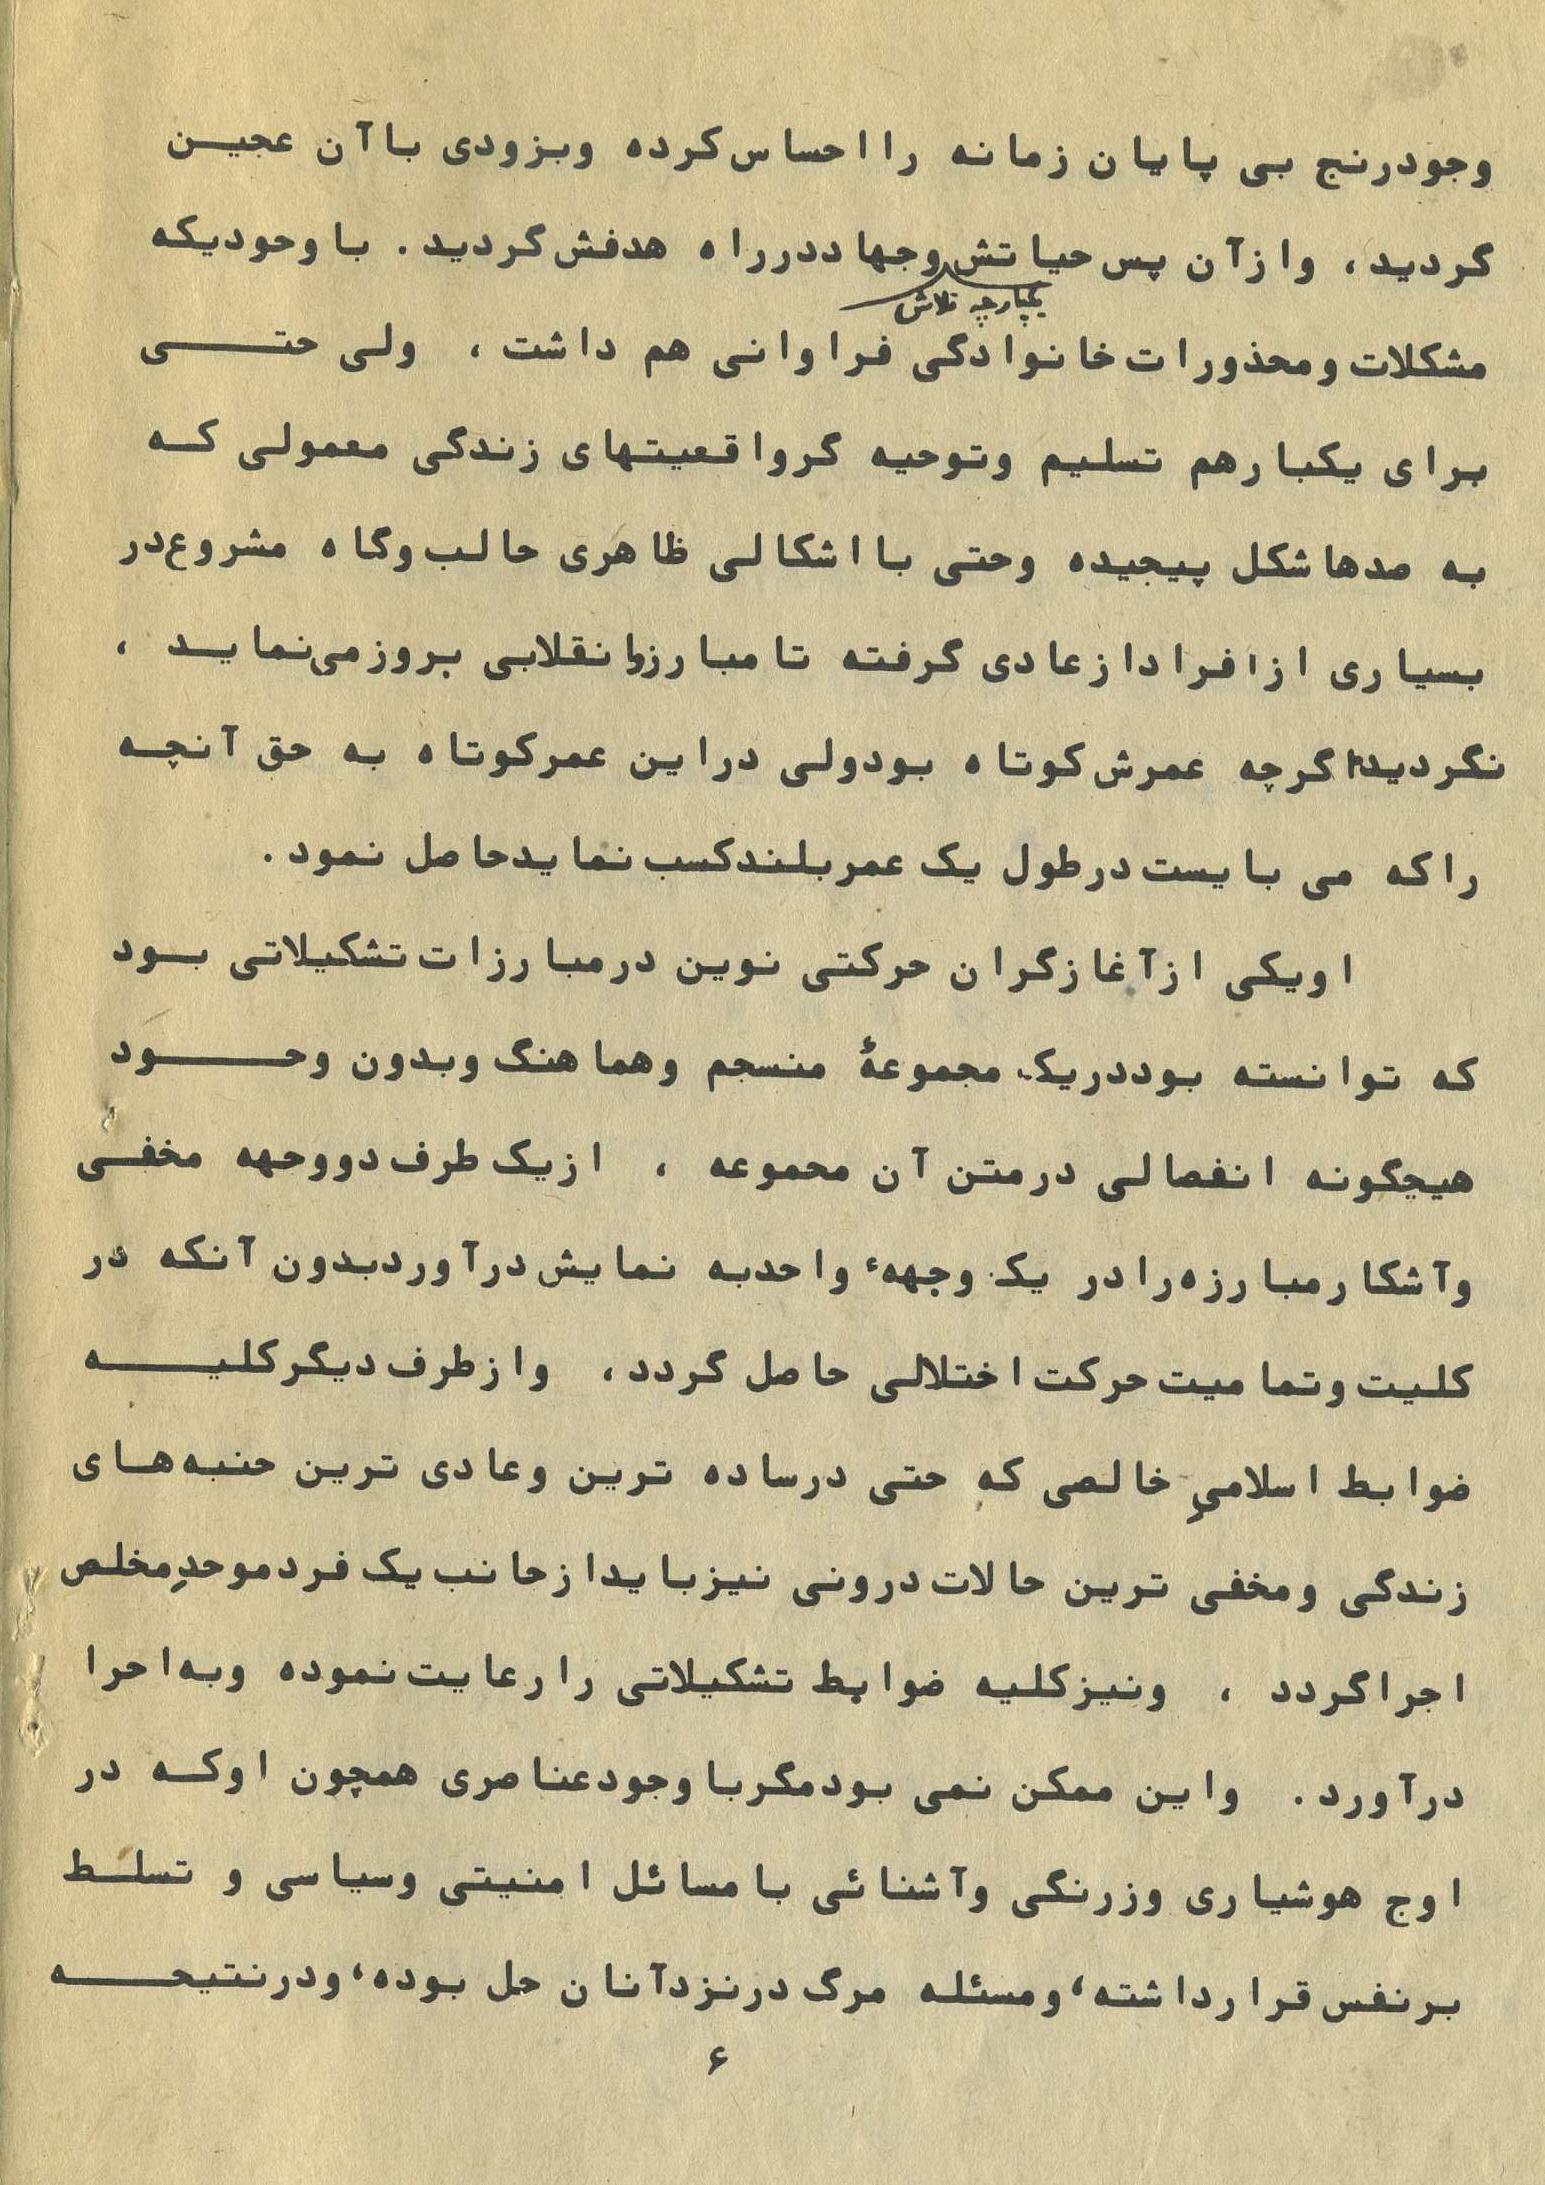 وجود رنج بی پایان زمانه را احساس کرده وبزودی با آن عجین
گردید، واز آن پس حیاتش وجهاد در راه هدفش گردید. با وحودیکه
یکپارچه تلاش
مشکلات ومحذورات خانوادگی فراوانی هم داشت، ولی حتی
برای یکبار هم تسلیم وتوحیه گر واقعیتهای زندگی معمولی که
به صدها شکل پیچیده وحتی با اشکالی ظاهری حالب وگاه مشروع در
بسیاری از افراد از عادی گرفته تا مبارز وانقلابی بروز می‌نماید،
نگردید اگرچه عمرش کوتاه بود ولی در این عمر کوتاه به حق آنچه
را که می بایست در طول یک عمر بلند کسب نماید حاصل نمود.
او یکی از آغازگران حرکتی نوین در مبارزات تشکیلاتی بود
که توانسته بود در یک مجموعهٔ منسجم وهماهنگ وبدون وحود
هیچگونه انفصالی در متن آن محموعه، از یک طرف دو وحهه مخفی
وآشکار مبارزه را در یک وجههٔ واحد به نمایش در آورد بدون آنکه در
کلیت وتمامیت حرکت اختلالی حاصل گردد، واز طرف دیگر کلیه
ضوابط اسلامیِ خالصی که حتی در ساده ترین وعادی ترین حنبه‌های
زندگی ومخفی ترین حالات درونی نیز باید از حانب یک فرد موحدِ مخلص
اجرا گردد، ونیز کلیه ضوابط تشکیلاتی را رعایت نموده وبه احرا
در آورد. واین ممکن نمی بود مگر با وجود عناصری همچون او که در
اوج هوشیاری وزرنگی وآشنائی با مسائل امنیتی وسیاسی و تسلط
بر نفس قرار داشته، ومسئله مرگ در نزد آنان حل بوده، ودر نتیحه
۶